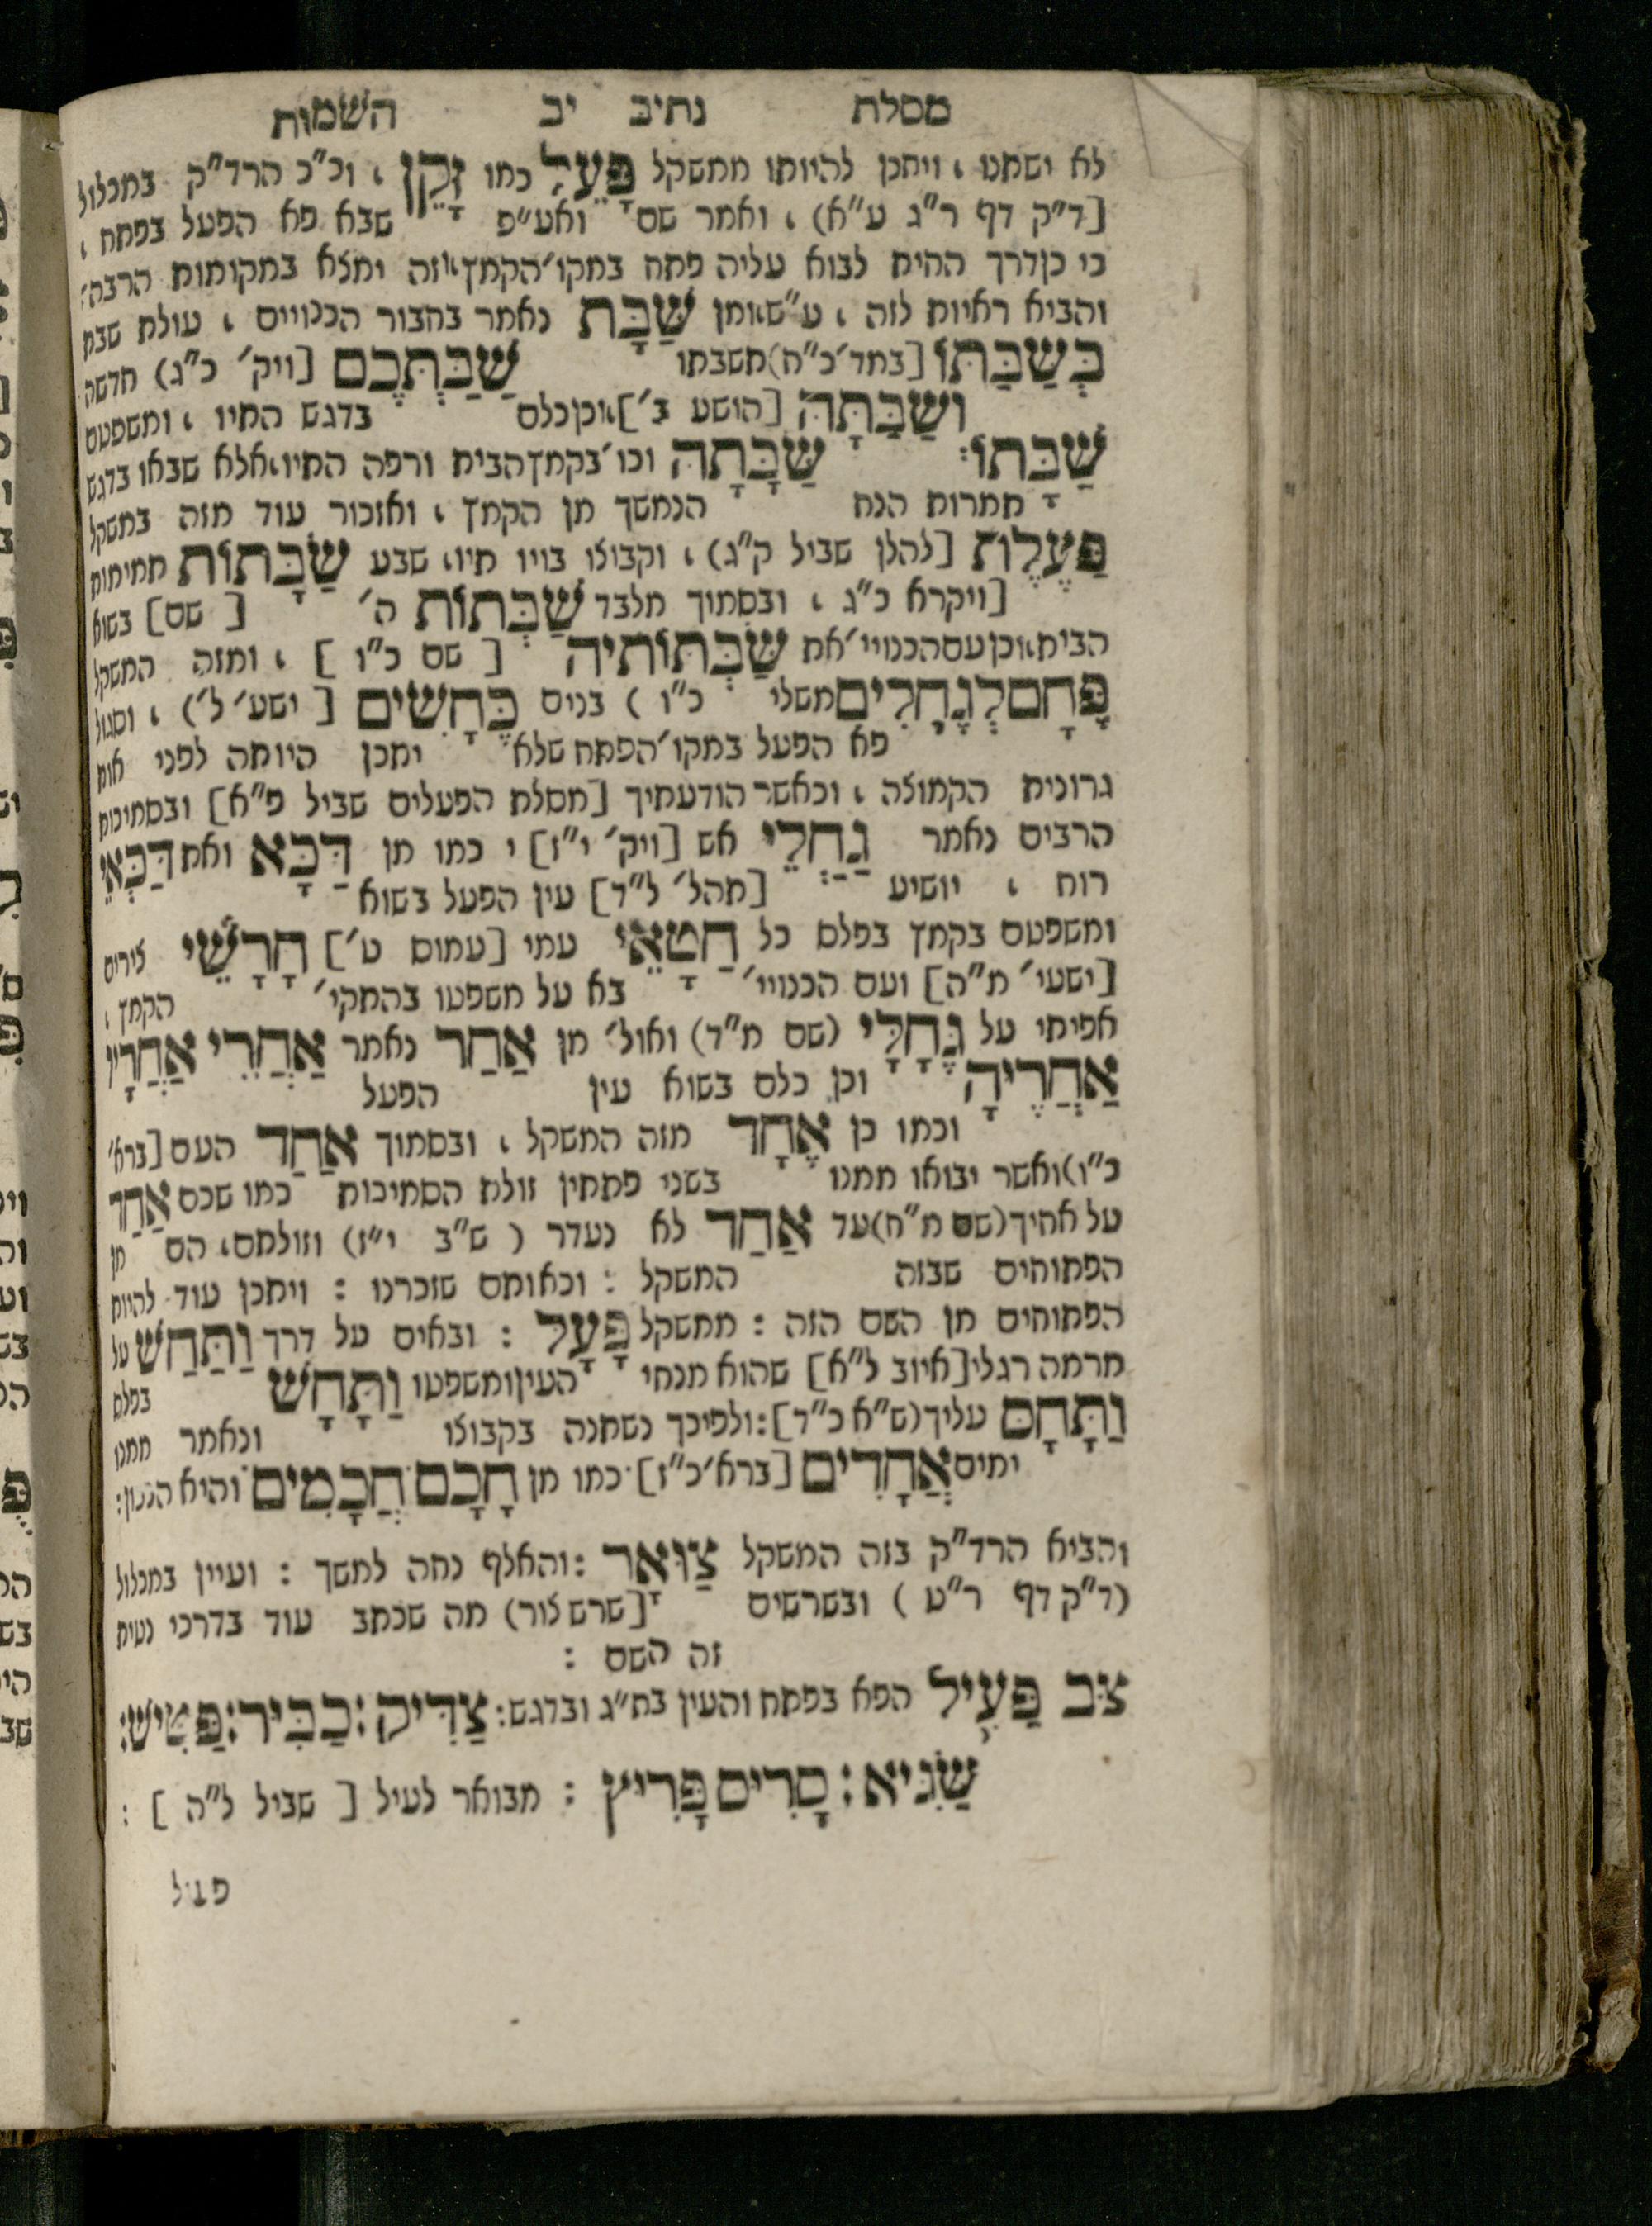 מסלת נתיב יב השמות
לא ישתנו, ויתכן להיותו ממשקל פָּעֵל כמו זָקֵן, וכ״כ הרד״ק במכלול
[ד״ק דף ר״ג ע״א), ואמר שם ואע״פ שבא פא הפעל בפתח,
כי כן דרך החית לבוא עליה פתח במקו׳ הקמץ, וזה ימצא במקומות הרבה,
והביא ראיות לזה, ע״ש, ומן שַׁבָּת נאמר בחבור הכנויים, עולת שבת
בְּשַׁבַּתּוֹ [במד׳ כ״ח) תשבתו שַׁבַּתְּכֶם [ויק׳ כ״ג) חדשה
וְשַׁבַּתָּהּ [הושע ב׳], וכן כלם בדגש התיו, ומשפטם
שַׁבָּתוֹ: שַׁבָּתָהּ וכו׳ בקמץ הבית ורפה התיו, אלא שבאו בדגש
תמרות הנח הנמשך מן הקמץ, ואזכור עוד מזה במשקל
פַּעֶלֶת [להלן שביל ק״ג), וקבוצו בויו תיו, שבע שַׁבָּתוֹת תמימות
[ויקרא כ״ג, ובסמוך מלבד שַׁבְּתוֹת ה׳ [שם] בשוא
הבית, וכן עם הכנויי׳ את שַׁבְּתוֹתֶיהָ [שם כ״ו], ומזה המשקל
פֶּחָם לְגֶחָלִים משלי כ״ו) בנים כֶּחָשִׁים [ישע׳ ל׳), וסגול
פא הפעל במקו׳ הפתח שלא יתכן היותה לפני אות
גרונית הקמוצה, וכאשר הודעתיך [מסלת הפעלים שביל פ״א] ובסמיכות
הרבים נאמר גַּחֲלֵי אש [ויק׳ י״ז] י כמו מן דַּכָּא ואת דַּכְּאֵי
רוח, יושיע [תהל׳ ל״ד] עין הפעל בשוא
ומשפטם בקמץ בפלם כל חַטָּאֵי עמי [עמוס ט׳] חָרָשֵׁי צירים
[ישעי׳ מ״ה] ועם הכנויי׳ בא על משפטו בהתקי׳ הקמץ,
אפיתי על גֶּחָלָי (שם מ״ד) ואול׳ מן אַחַר נאמר אַחֲרֵי אַחֲרָיו
אַחֲרֶיהָ וכן כלם בשוא עין הפעל
וכמו כן אֶחָד מזה המשקל, ובסמוך אַחַד העם [ברא׳
כ״ו) ואשר יבואו ממנו בשני פתחין זולת הסמיכות כמו שכם אַחַד
על אחיך (שם מ״ח) עד אַחַד לא נעדר (ש״ב י״ז) וזולתם, הם מן
הפתוחים שבזה המשקל: וכאותם שזכרנו: ויתכן עוד להיות
הפתוחים מן השם הזה: ממשקל פָּעָל: ובאים על דרך וַתַּחַשׁ על
מרמה רגלי [איוב ל״א] שהוא מנחי העין ומשפטו וַתָּחָשׁ בפלם
וַתָּחָס עליך (ש״א כ״ד]: ולפיכך נשתנה בקבוצו ונאמר ממנו
ימים אֲחָדִים [ברא׳ כ״ז] כמו מן חָכָם חֲכָמִים והיא הנכון:
והביא הרד״ק בזה המשקל צַוָּאר: והאלף נחה למשך: ועיין במכלול
(ד״ק דף ר״ט) ובשרשים [שרש צור) מה שכתב עוד בדרכי נטית
זה השם:
צב פַּעִּיל הפא בפתח והעין בח״ג ובדגש: צַדִּיק: כַּבִּיר: פַּטִּישׁ:
שַׂגִּיא: סָרִיס פָּרִיץ: מבואר לעיל [שביל ל״ה]: